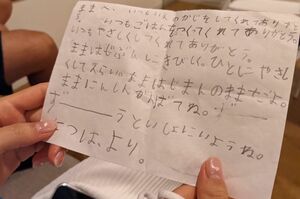 ままへ、いつもかじをしてくれてありがと
う。いつもごはんをつくってくれてありがとう。
いつもやさしくしてくれてありがとう。
ままはじぶんにきびしく。ひとにやさし
くてえらい。ままはじまんのままだよ。
ままにんしんがんばてね。ず
ず――――っといっしょにいようね。
つは、より。